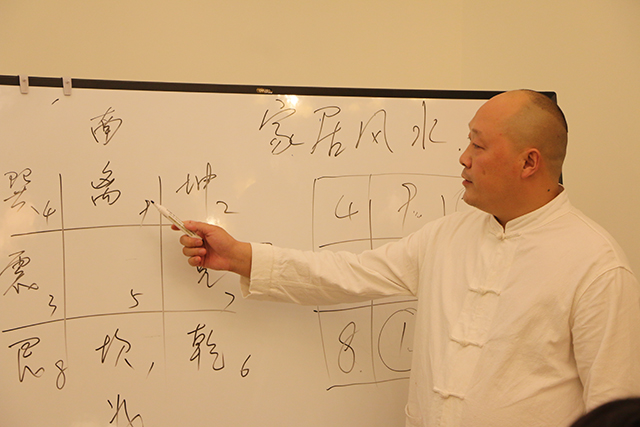 南
家居风水
巽4 离9 坤2
震3 5 7
艮8 坎1 乾6
4 9
8 1